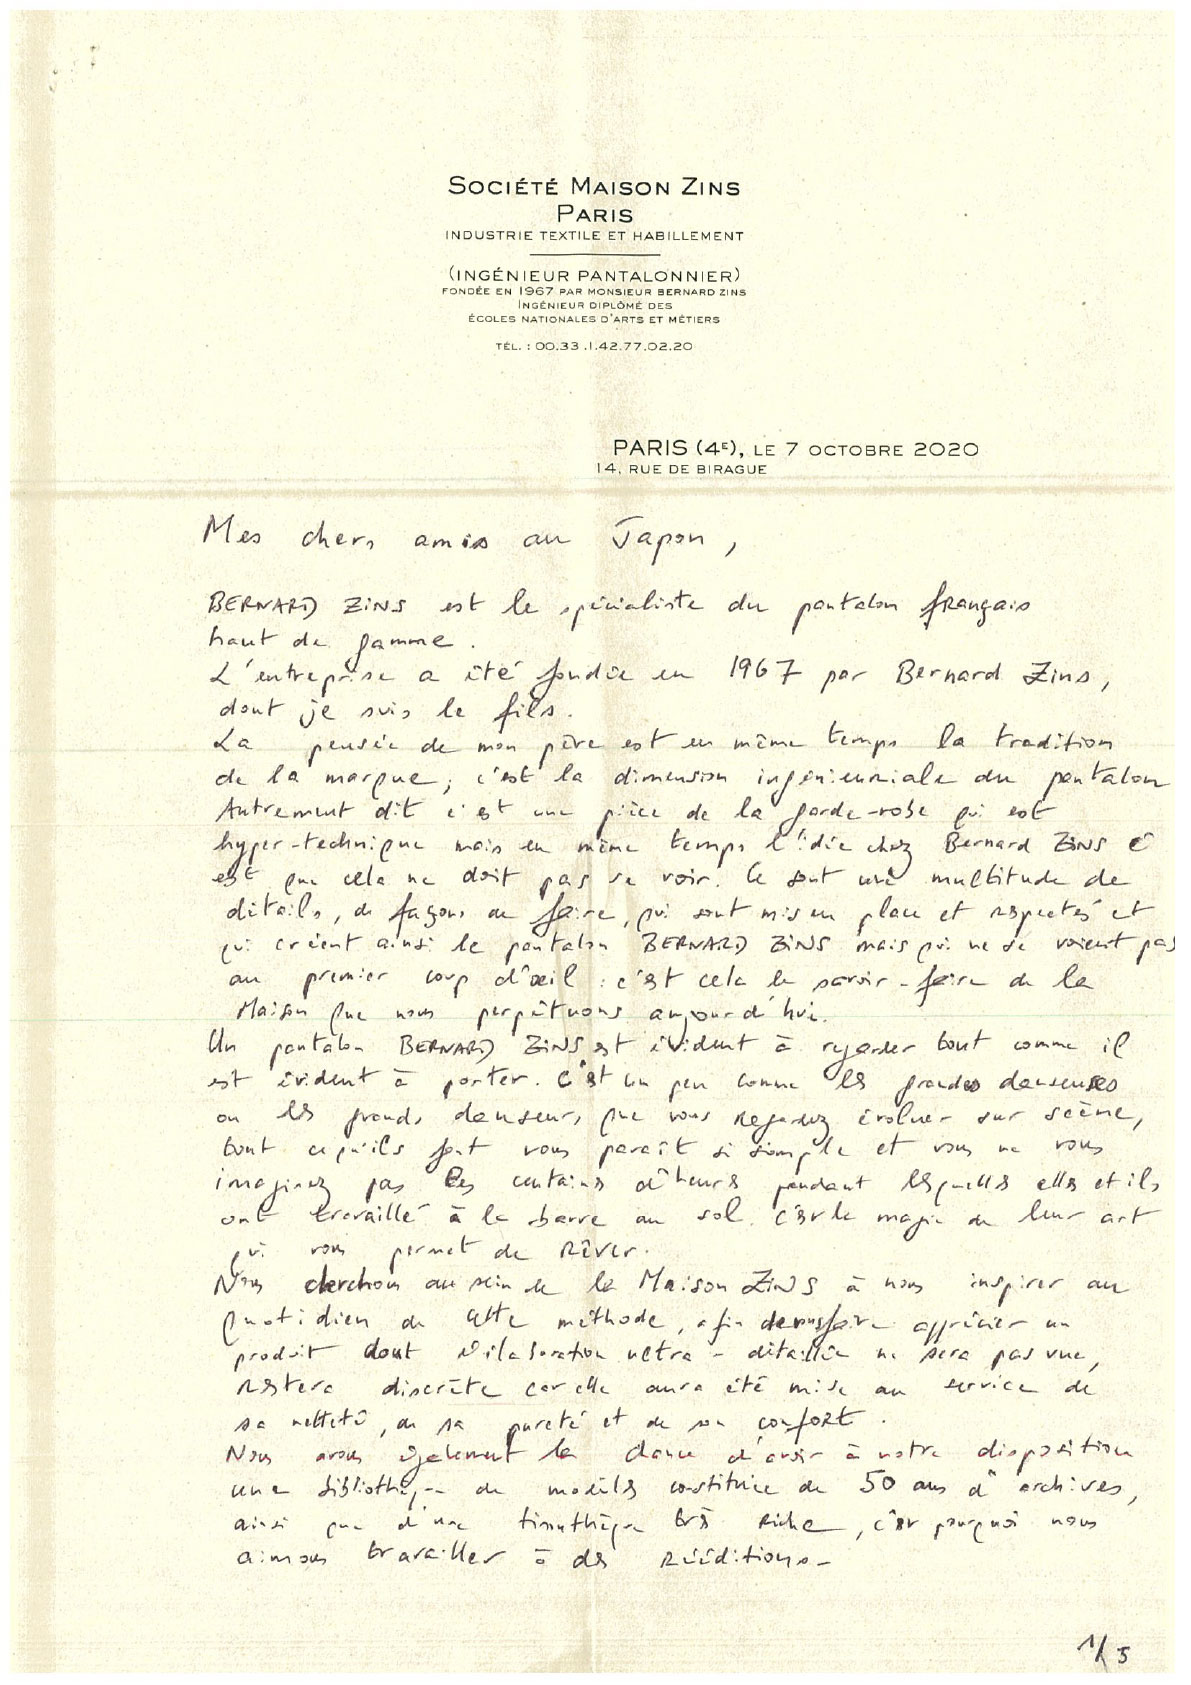 SOCIÉTÉ MAISON ZINS
PARIS
INDUSTRIE TEXTILE ET HABILLEMENT
(INGÉNIEUR PANTALONNIER)
FONDÉE EN 1967 PAR MONSIEUR BERNARD ZINS
INGÉNIEUR DIPLÔMÉ DES
ÉCOLES NATIONALES D'ARTS ET MÉTIERS
TÉL. : 00.33.1.42.77.02.20
PARIS (4E), LE 7 OCTOBRE 2020
14, RUE DE BIRAGUE
Mes chers amis au Japon,
BERNARD ZINS est le spécialiste du pantalon français
haut de gamme.
L'entreprise a été fondée en 1967 par Bernard Zins,
dont je suis le fils.
La pensée de mon père est en même temps la tradition
de la marque ; c'est la dimension ingénieuriale du pantalon
Autrement dit c'est une pièce de la garde-robe qui est
hyper-technique mais en même temps l'idée chez Bernard ZINS
est que cela ne doit pas se voir. Ce sont une multitude de
détails, de façons de faire, qui sont mis en place et respectés et
qui créent ainsi le pantalon BERNARD ZINS mais qui ne se voient pas
au premier coup d'œil : c'est cela le savoir-faire de la
Maison que nous perpétuons aujourd'hui.
Un pantalon BERNARD ZINS est évident à regarder tout comme il
est évident à porter. C'est un peu comme les grandes danseuses
ou les grands danseurs que vous regardez évoluer sur scène,
tout ce qu'ils font vous paraît si simple et vous ne vous
imaginez pas les centaines d'heures pendant lesquelles elles et ils
ont travaillé à la barre au sol. C'est la magie de leur art
qui vous permet de rêver.
Nous cherchons au sein de la Maison ZINS à nous inspirer au
quotidien de cette méthode, afin de vous faire apprécier un
produit dont l'élaboration ultra-détaillée ne sera pas vue,
restera discrète car elle aura été mise au service de
sa netteté, de sa pureté et de son confort.
Nous avons également la chance d'avoir à notre disposition
une bibliothèque de modèles constituée de 50 ans d'archives,
ainsi que d'une tissuthèque très riche, c'est pourquoi nous
aimons travailler à des rééditions-
1/5